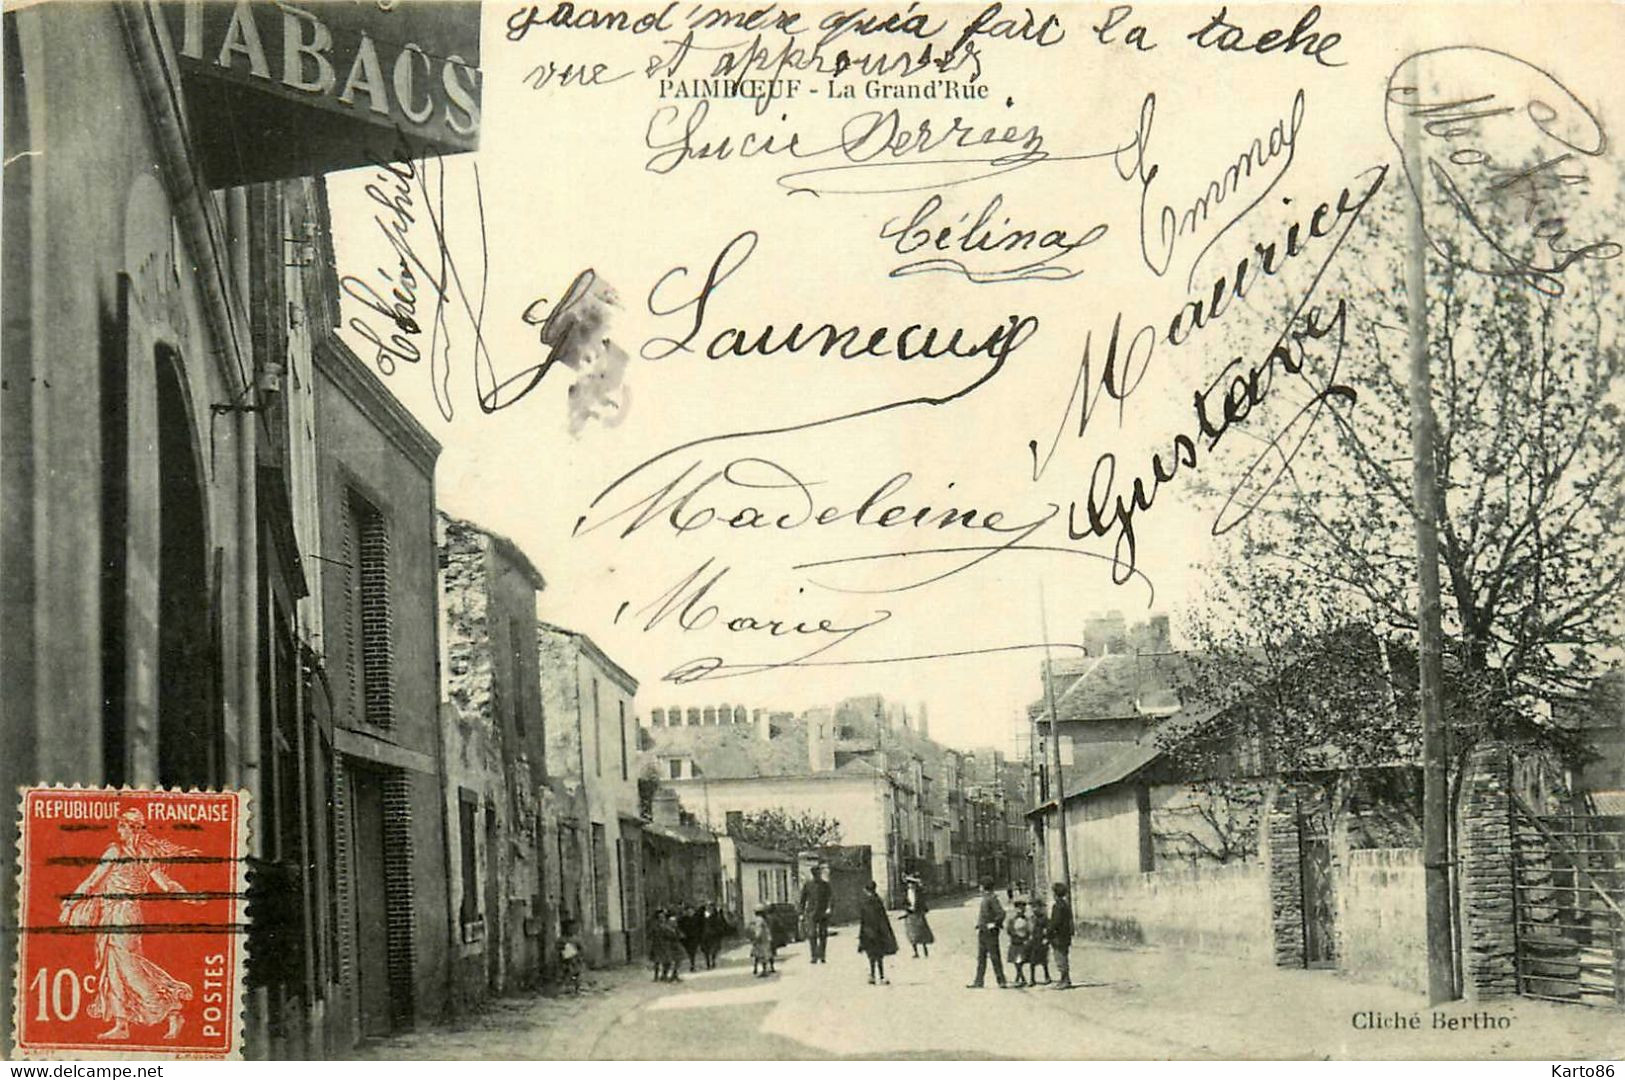 TABACS
grand'mère qui a fait la tache
vue et approuvés
PAIMBŒUF - La Grand'Rue
Lucie Derrien
Emma
Célina
Théophile
Launeaux
Maurice
Gustave
Madeleine
Marie
REPUBLIQUE FRANÇAISE
10c
POSTES
Cliché Bertho
Karto86